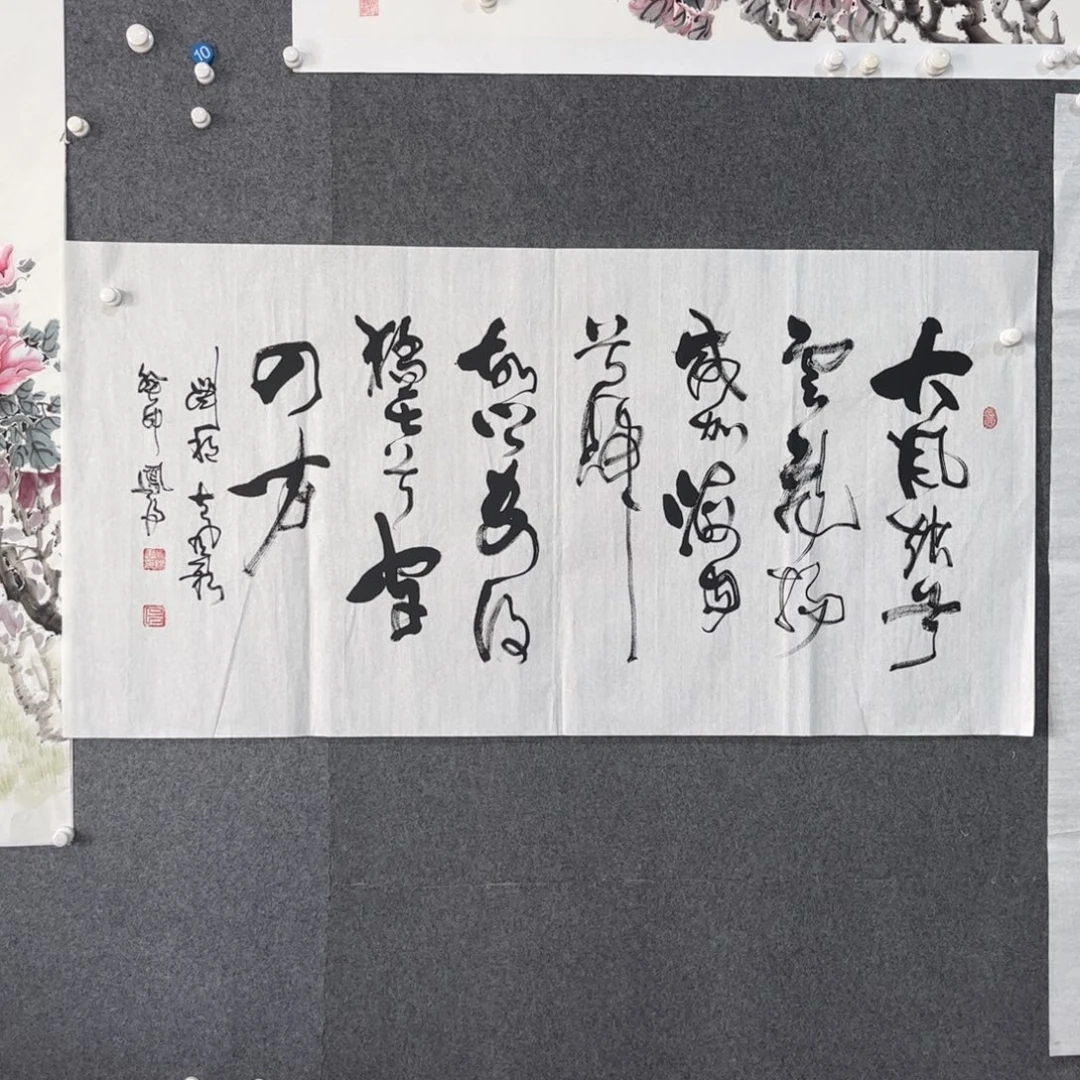 大風起兮
雲飛揚
威加海内
兮歸
故鄉安得
猛士兮守
四方
劉邦大風歌
10